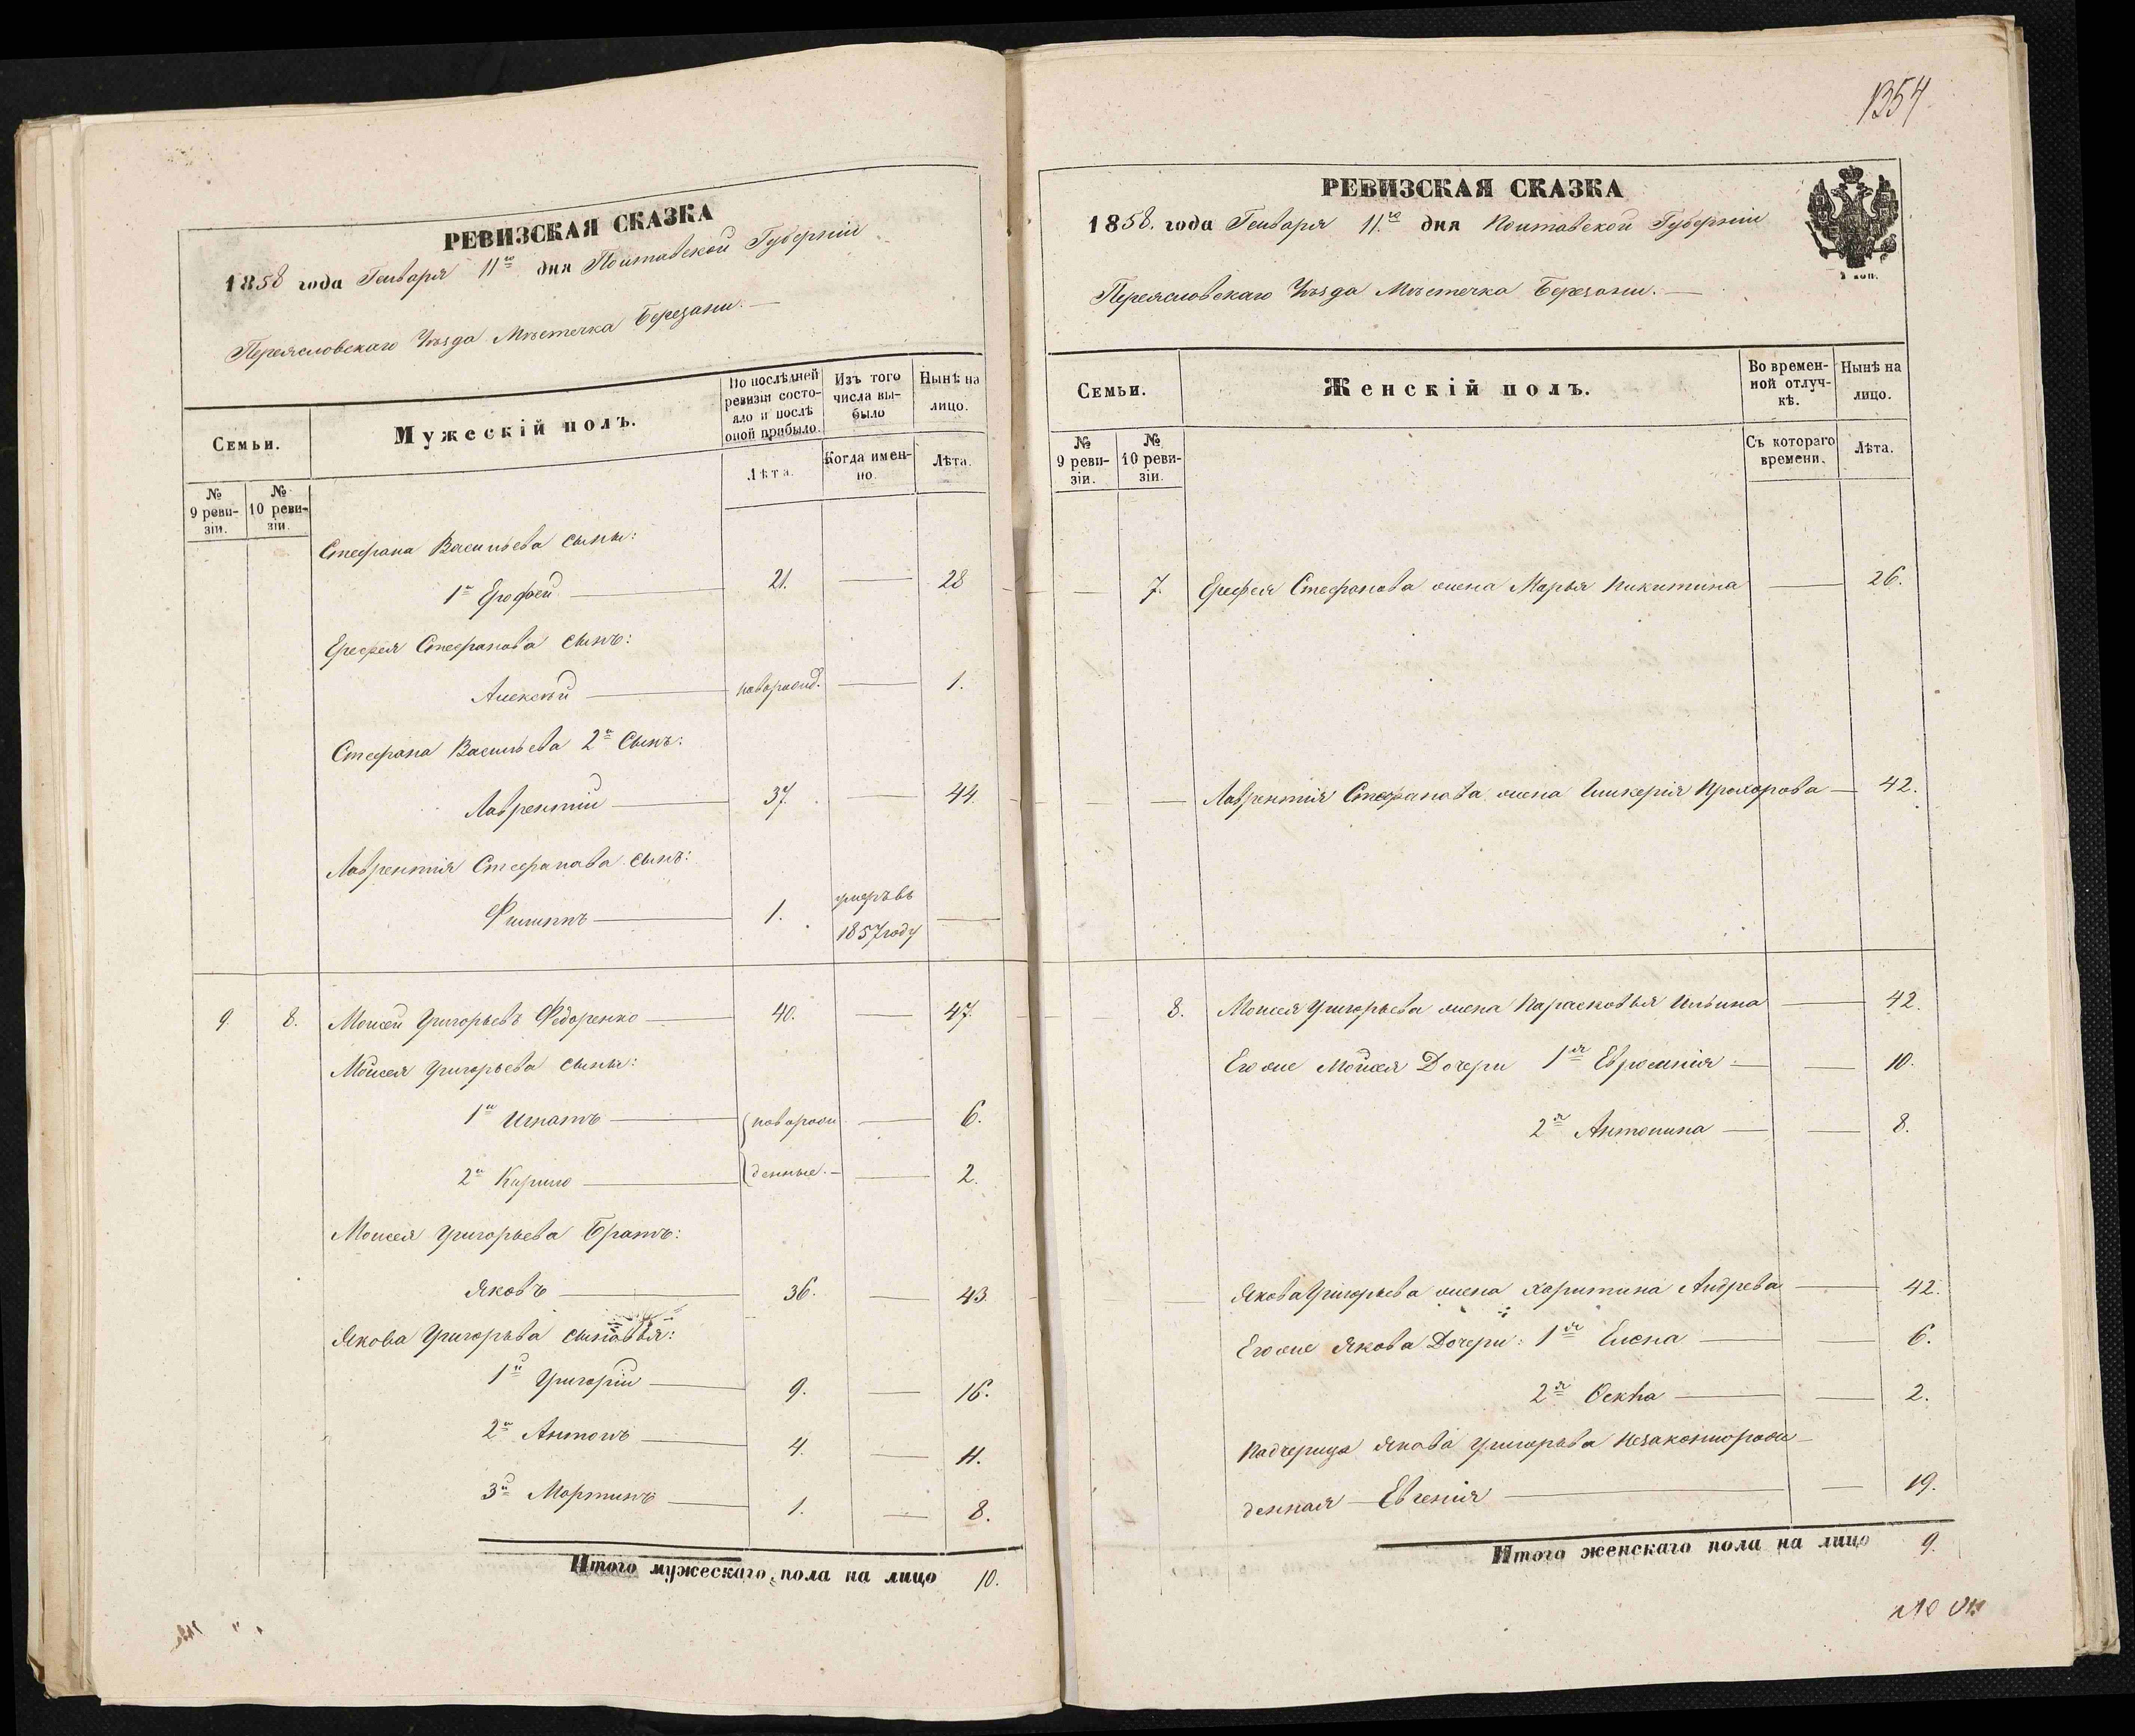 1354
РЕВИЗСКАЯ СКАЗКА
1858 года Генваря 11го дня Полтавской Губерніи
Переясловскаго Уѣзда Мѣстечка Березани.
Семьи.
Мужескій полъ.
По послѣдней ревизіи состояло и послѣ оной прибыло.
Изъ того числа выбыло
Нынѣ на лицо.
№ 9 ревизіи.
№ 10 ревизіи.
Лѣта.
Когда именно.
Лѣта.
Стефана Васильева сыны:
1й Ерофей 21. 28
Ерефея Стефанова сынъ:
Алексѣй новорожд. 1.
Стефана Васильева 2й Сынъ:
Лаврентій 37. 44.
Лаврентія Стефанова сынъ:
Филиппъ 1. умеръ въ
1857 году
9 8. Моисей Григорьевъ Федоренко 40. 47.
Моисея Григорьева сыны:
1й Игнатъ новорож 6.
2й Кирило денные. 2.
Моисея Григорьева Братъ:
Яковъ 36. 43.
Якова Григорьва сыновья:
1й Григорій 9. 16.
2й Антонъ 4. 11.
3й Мартинъ 1. 8.
Итого мужескаго пола на лицо 10.
РЕВИЗСКАЯ СКАЗКА
1858. года Генваря 11.го дня Полтавской Губерніи
Переясловскаго Уѣзда Мѣстечка Березани.
Семьи.
Женскій полъ.
Во временной отлучкѣ.
Нынѣ на лицо.
№ 9 ревизіи.
№ 10 ревизіи.
Съ котораго времени.
Лѣта.
7. Ерефея Стефанова жена Марья Никитина 26.
Лаврентія Стефанова жена Гликерія Прохорова 42.
8. Моисея Григорьева жена Парасковья Ильина 42.
Его же Моисея Дочери 1я Евросинія 10.
2я Антонина 8.
Якова Григорьева жена Харитина Андрева 42.
Его же Якова Дочери: 1я Елена 6.
2я 2.
Падчерица Якова Григорьва Незаконнорож
денная Евгенія 19.
Итого женскаго пола на лицо 9.